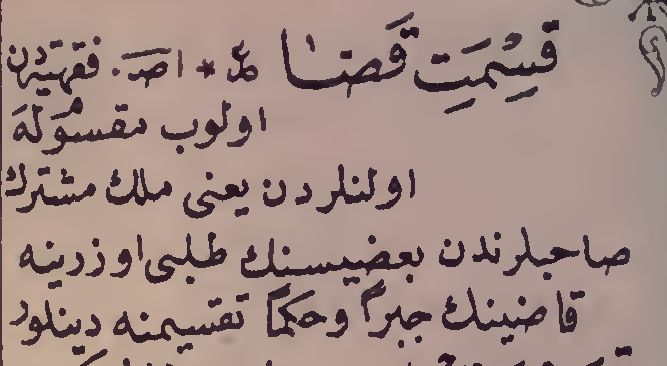 قِسْمَتِ قَضَا عر * اصـ. فقهيه‌دن
اولوب مقسومٌ لَهَ
اولنلردن يعنى ملك مشترك
صاحبلرندن بعضيسنك طلبى اوزرينه
قاضينك جبراً وحكماً تقسيمنه دينلور